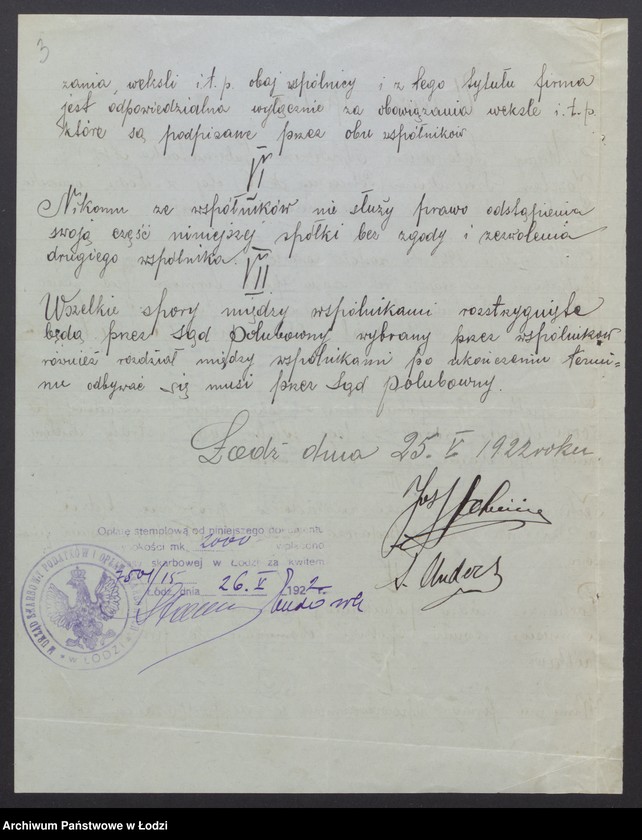 3
zania, weksli i t. p. obaj wspólnicy i z tego tytułu firma
jest odpowiedzialna wyłącznie za obowiązania weksle i. t. p.
które są podpisane przez obu wspólników
VI
Nikomu ze wspólników nie służy prawo odstąpienia
swoją część niniejszej spółki bez zgody i zezwolenia
drugiego wspólnika.
VII
Wszelkie spory między wspólnikami rozstrzygnięte
będą przez Sąd Polubowny wybrany przez wspólników
również rozdział między wspólnikami po ukończeniu termi-
nu odbywać się musi przez Sąd Polubowny.
Łódź dnia 25. V 1922 roku.
Jos
S. Anders
Opłatę stemplową od niniejszego dokumentu
mk. 2000 wpłacono
skarbowej w Łodzi za kwitem
7501/15
Łódź, dnia 26. V 1922
URZĄD SKARBOWY PODATKÓW I OPŁAT
* W ŁODZI *
Archiwum Państwowe w Łodzi